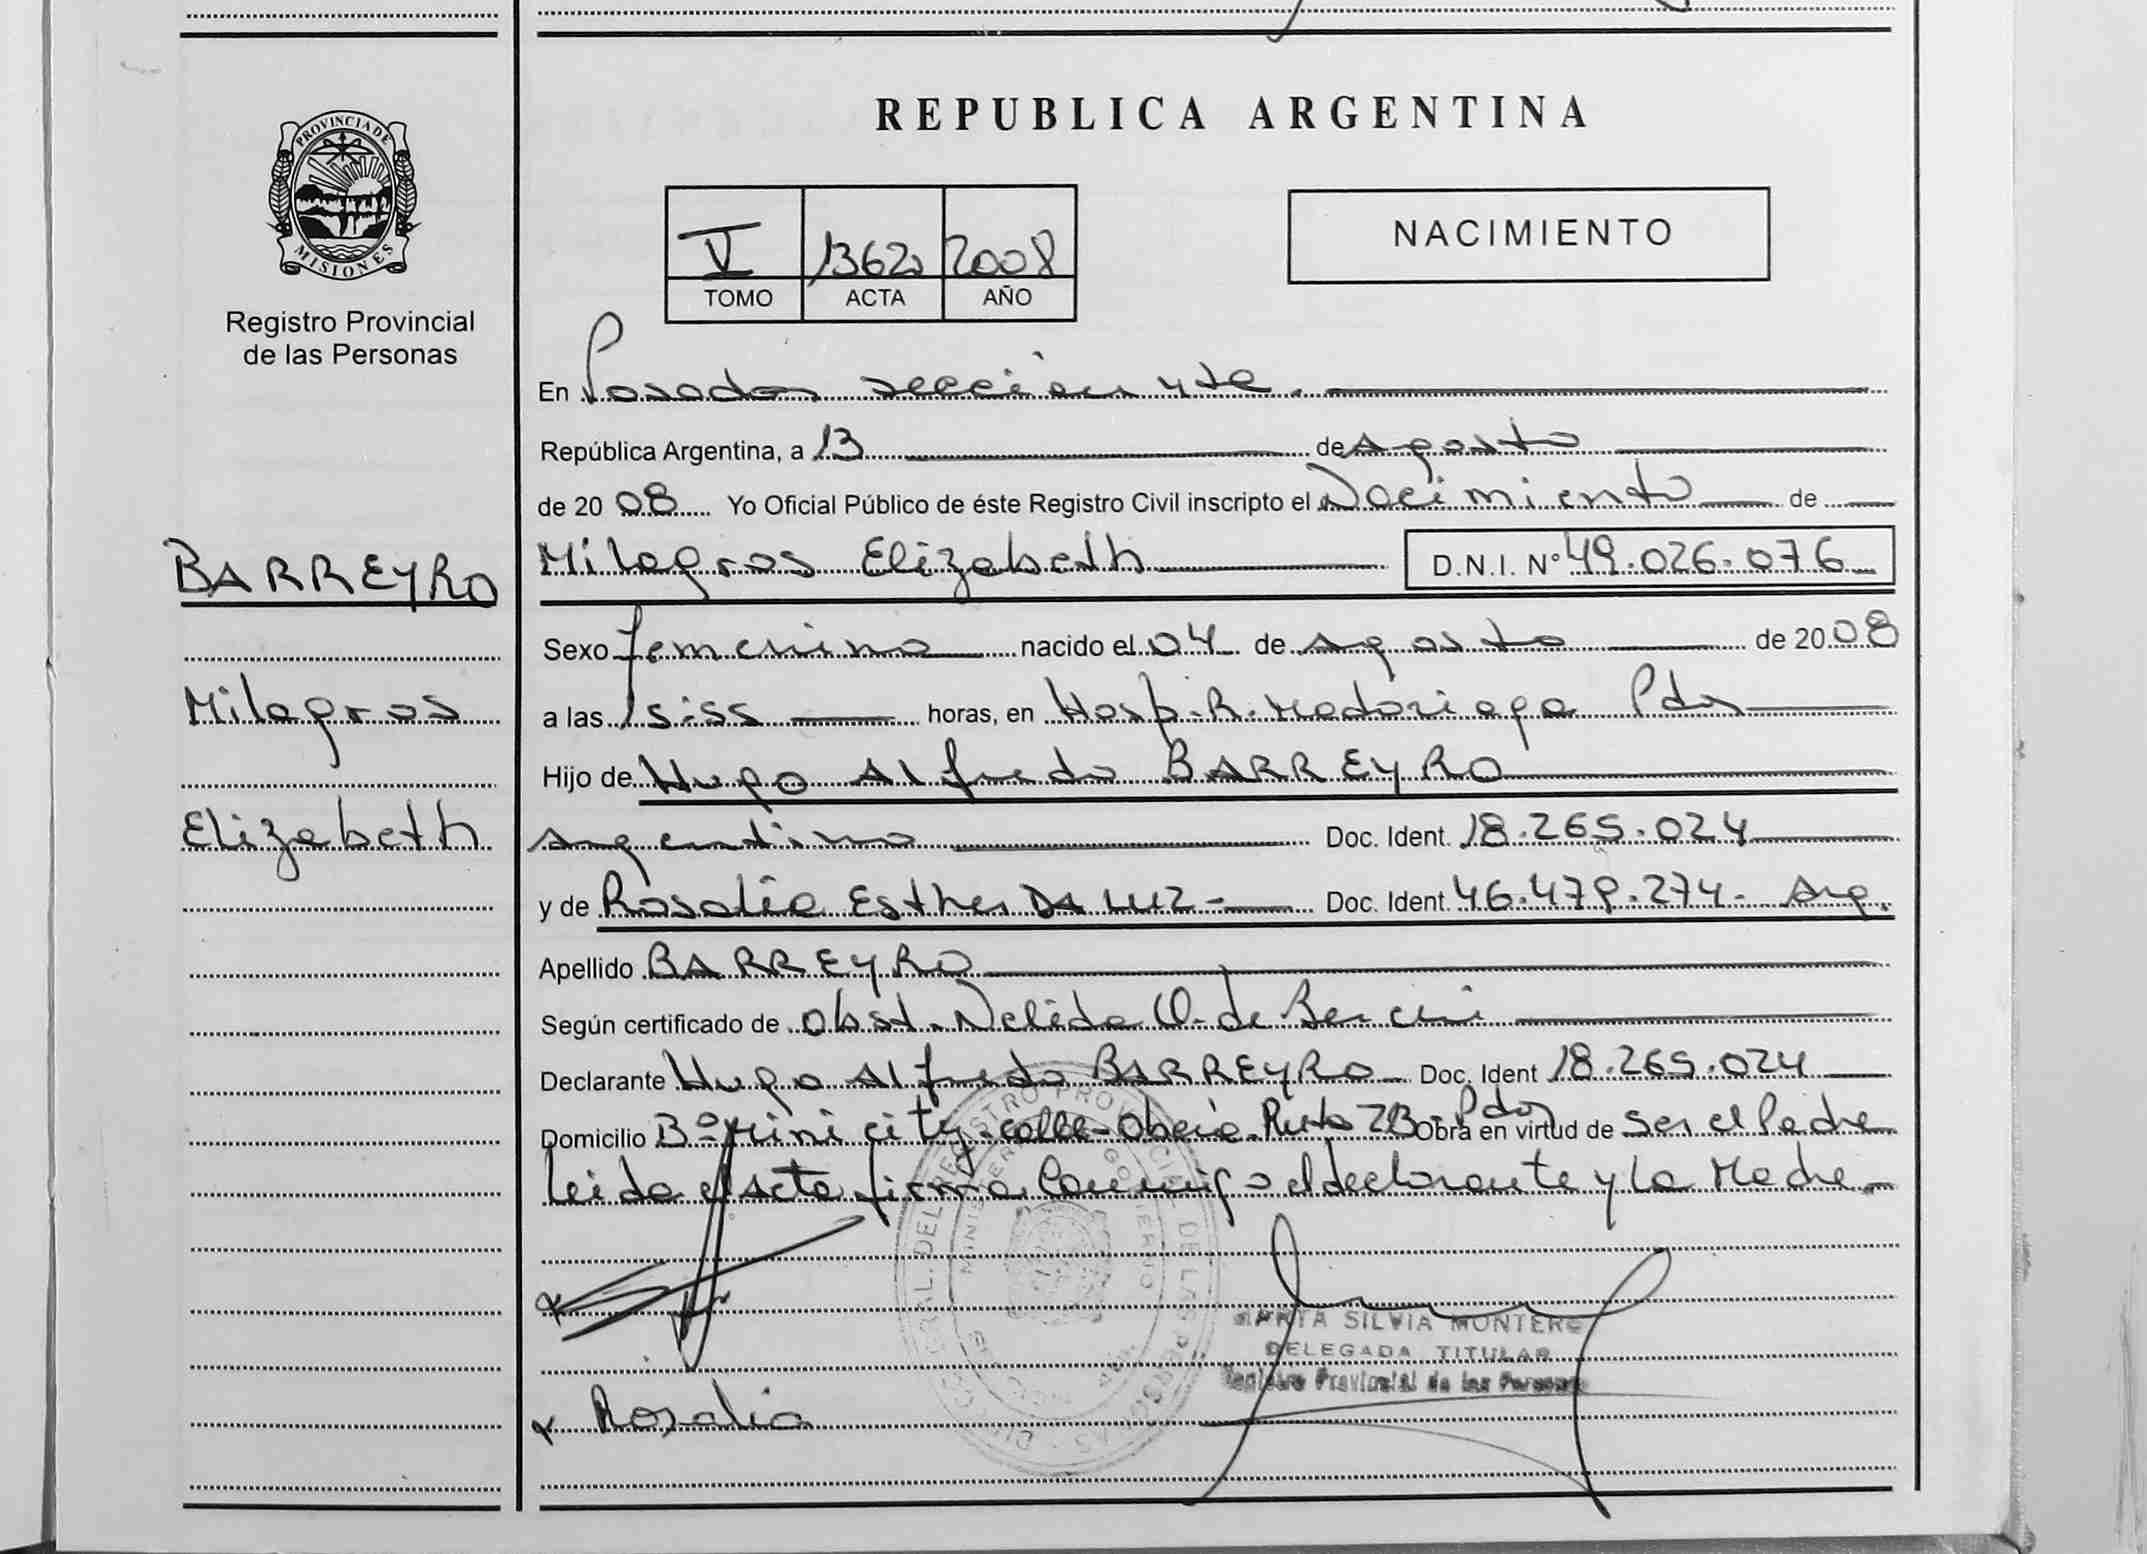 REPUBLICA ARGENTINA
PROVINCIA DE
MISIONES
Registro Provincial
de las Personas
V 1362 2008
TOMO ACTA AÑO
NACIMIENTO
En Posadas sección 4ta.
República Argentina, a 13 de Agosto
de 2008 Yo Oficial Público de éste Registro Civil inscripto el Nacimiento de
BARREYRO
Milagros Elizabeth D.N.I. Nº 49.026.076
Sexo femenino nacido el 04 de agosto de 2008
Milagros
a las 15:55 horas, en Hosp. R. Madariaga Pdas
Hijo de Hugo Alfredo BARREYRO
Elizabeth
argentino Doc. Ident. 18.265.024
y de Rosalía Esther DA LUZ - Doc. Ident. 46.479.274 - Arg.
Apellido BARREYRO
Según certificado de Obst. Nelida O. de
Declarante Hugo Alfredo BARREYRO Doc. Ident 18.265.024
Domicilio Bº Mini city - calle - Oberá - Ruta 213 - Pdas Obra en virtud de ser el Padre
Leida el acta firma conmigo el declarante y la Madre
MARTA SILVIA MONTERO
DELEGADA TITULAR
Registro Provincial de las Personas
x Rosalia